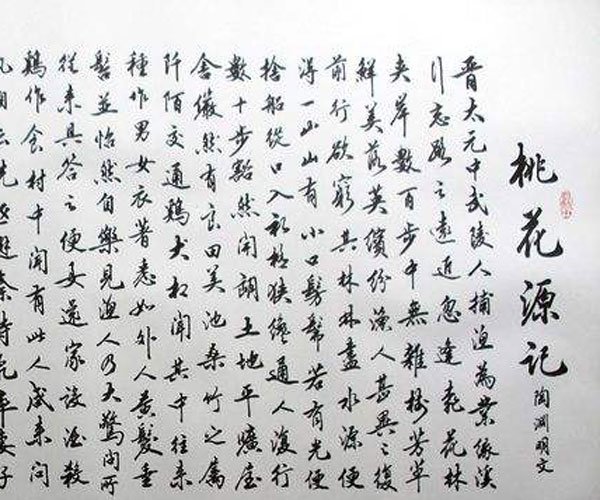 桃花源記
陶淵明文
晉太元中武陵人捕漁為業緣溪
行忘路之遠近忽逢桃花林
夹岸數百步中無雜樹芳草
鮮美落英繽紛漁人甚異之復
前行欲窮其林林盡水源便
得一山山有小口髣髴若有光便
捨船從口入初極狹纔通人復行
數十步豁然開朗土地平曠屋
舍儼然有良田美池桑竹之屬
阡陌交通鷄犬相聞其中往来
種作男女衣著悉如外人黄髮垂
髫並怡然自樂見漁人乃大驚問所
從来具答之便要還家設酒殺
鷄作食村中聞有此人咸来問
自云先世避秦時亂率妻子